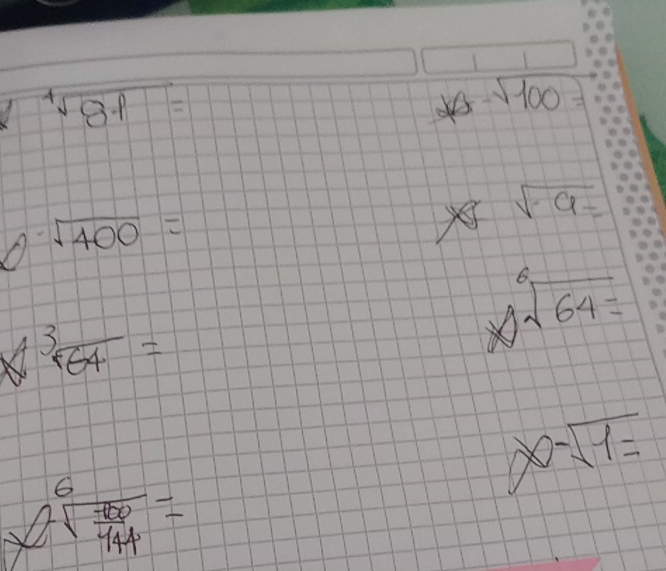 ⁴√81 =
-√100 =
-√400 =
√-9 =
³√64 =
⁶√64 =
-√1 =
⁶√100/144 =